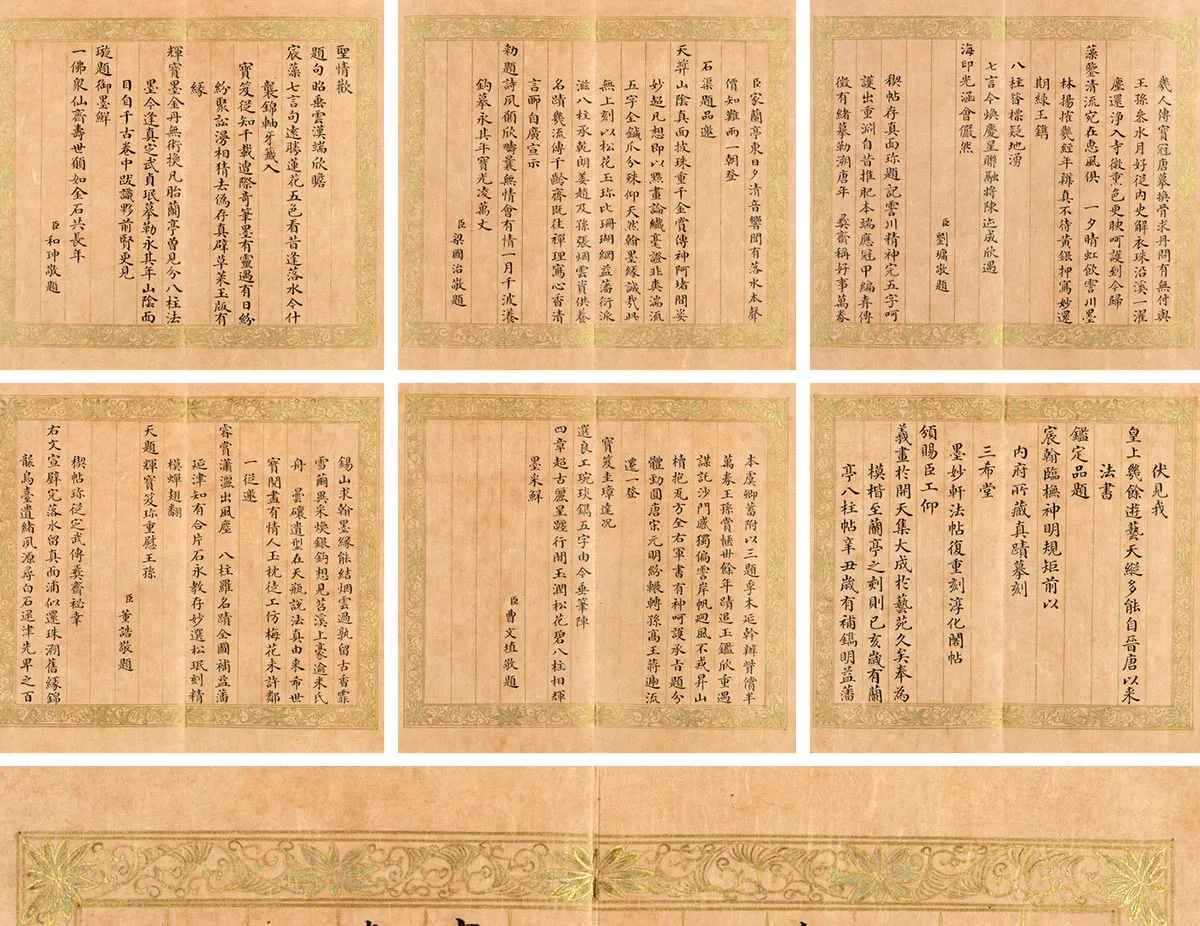 幾人傳寶冠唐摹換骨求丹間有無付與
王孫參水月好從內史解衣珠沿溪一濯
塵還淨入寺微熏色更腴呵護到今歸
藻鑒清流宛在惠風俱 一夕晴虹飲霅川墨
林揚搉幾經年辨真不待黃銀押寫妙還
期綠玉鐫
八柱昔標疑地湧
七言今煥慶星聯融將陳迹成欣遇
海印光涵會儼然
臣劉墉敬題
禊帖存真面珎題記霅川精神完五字呵
護出重淵自昔推肥本端應冠甲編弆傳
徵有緒摹勒溯唐年 彝齋稱好事萬卷
臣家蘭亭東日夕清音響間有落水本聲
價知難兩一朝登
石渠題品邀
天弆山陰真面披珠重千金賞傳神阿堵間姿
妙超凡想即以點畫論纖毫證非奭湍流
五字全鍼爪分殊仰天然翰墨緣誠哉此
無上刻以松花玉珎比珊瑚網益藩衍派
滋八柱承乾朗姜趙及孫張烟雲資供養
名蹟幾流傳千齡齋既往禪理寫心香清
言酈自廣宣示
勑題詩夙願欣疇曩無情會有情一月千波瀁
鈎摹永其年寶光凌萬丈
臣梁國治敬題
聖情歡
題句昭垂雲漢端欣瞻
宸藻七言句遠勝蓮花五色看昔逢落水今什
襲錦軸牙籤入
寶笈從知千載遭際奇筆墨有靈遇有日紛
紛聚訟漫相猜去偽存真辟草萊玉版有
緣
輝寶墨金丹無術換凡胎蘭亭曾見分八柱法
墨今逢真定武貞珉摹勒永其年山陰面
目自千古卷中跋識夥前賢更見
璇題御墨鮮
一佛衆仙齋壽世願如金石共長年
臣和珅敬題
伏見我
皇上幾餘遊藝天縱多能自晉唐以來
法書
鑑定品題
宸翰臨橅神明規矩前以
內府所藏真蹟摹刻
三希堂
墨妙軒法帖復重刻淳化閣帖
頒賜臣工仰
羲畫於開天集大成於藝苑久矣奉為
模楷至蘭亭之刻則己亥歲有蘭
亭八柱帖辛丑歲有補鐫明益藩
本虞卿蓄附以三題季木延幹辦贊償半
萬春王孫賞愜卅餘年蹟追玉鑑欣重過
謀託沙門感獨偏雲岸帆迴風不戎昇山
櫝抱死方全右軍書有神呵護承古題分
體勁圓唐宋元明紛輾轉孫高王蔣遞流
遷一登
寶笈圭璋達況
選良工琬琰鐫五字由今垂筆陣
四章超古麗星躔行間玉潤松花碧八柱相輝
墨采鮮
臣曹文埴敬題
錫山求翰墨緣能結烟雲過孰留古香霏
雪爾異采煥銀鈎想見苕溪上豪逾米氏
舟 曇礲遺型在天瓶說法真由來希世
寶閱盡有情人玉枕徒工仿梅花未許鄰
一從邀
睿賞瀟灑出風塵 八柱羅名蹟全圖補益藩
延津知有合片石永教存妙選松珉刻精
模蟬翅翻
天題輝寶笈珎重慰王孫
臣董誥敬題
禊帖珎從定武傳彝齋祕笈
右文宣辟完落水留真面浦似還珠溯舊緣錦
龍烏臺遺緒夙源尋白石逞津先畀之百